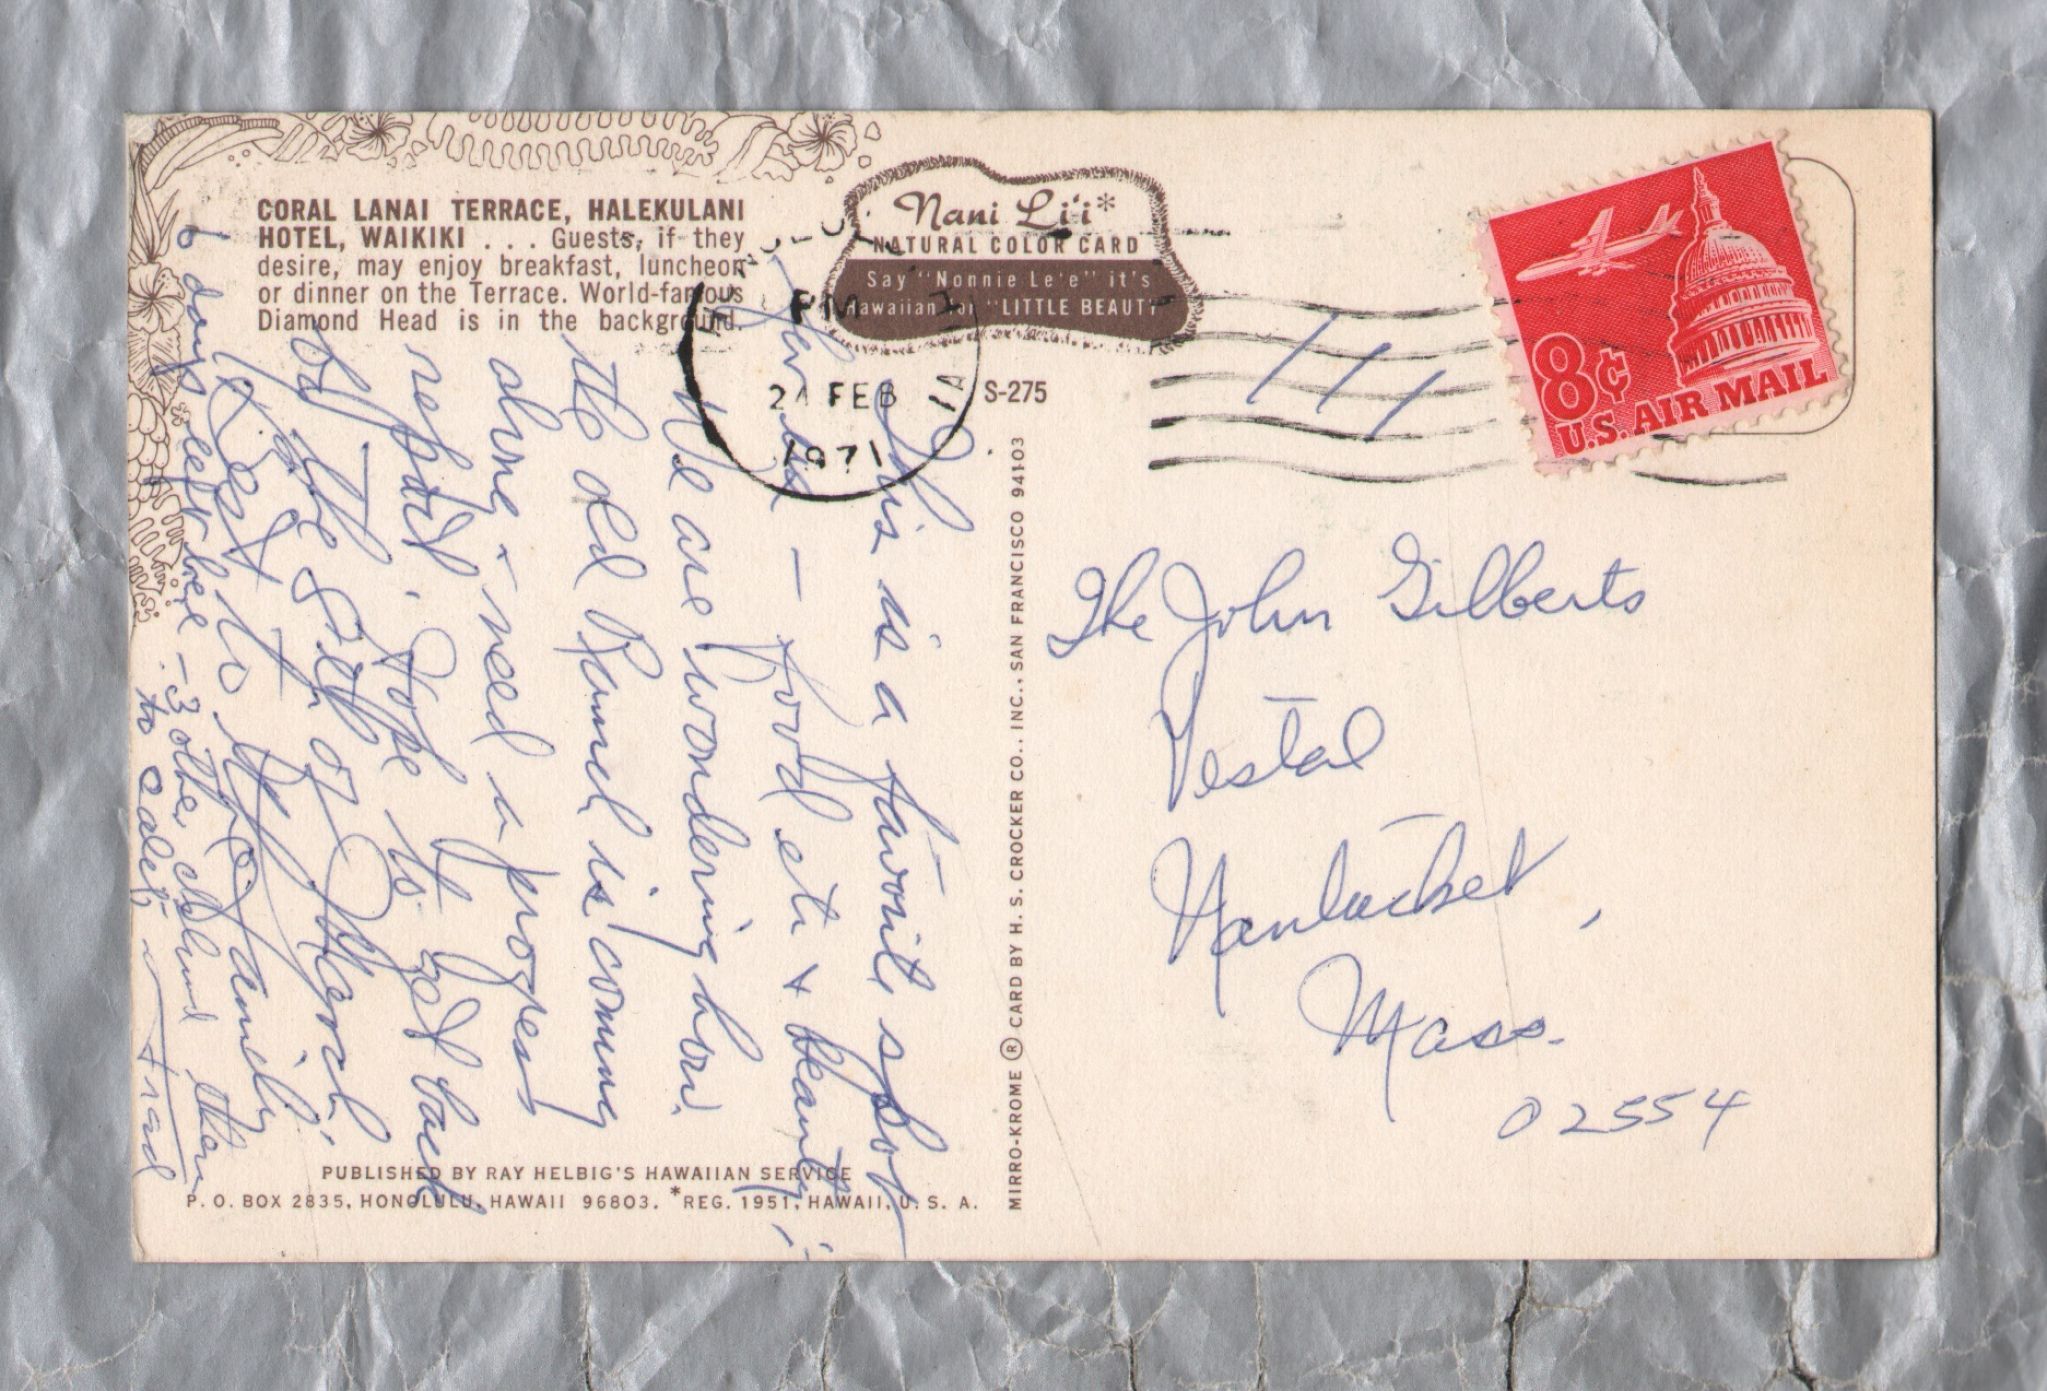 CORAL LANAI TERRACE, HALEKULANI
HOTEL, WAIKIKI . . . Guests, if they
desire, may enjoy breakfast, luncheon
or dinner on the Terrace. World-famous
Diamond Head is in the background.
Nani Li'i*
NATURAL COLOR CARD
Say "Nonnie Le'e" it's
Hawaiian for "LITTLE BEAUTY"
PM
FEB
1971
S-275
8¢
U.S. AIR MAIL
This is a favorite spot
for us — food etc + beauty;
We are wondering how
the old Ramel is coming
along + need a progress
report. Hope to get back
by the of March.
Best to all family
6 days left here - 3 other islands then
to
The John Gilberts
Vestal
Nantucket,
Mass.
02554
MIRRO-KROME ® CARD BY H. S. CROCKER CO., INC., SAN FRANCISCO 94103
PUBLISHED BY RAY HELBIG'S HAWAIIAN SERVICE
P. O. BOX 2835, HONOLULU, HAWAII 96803. *REG. 1951, HAWAII, U. S. A.